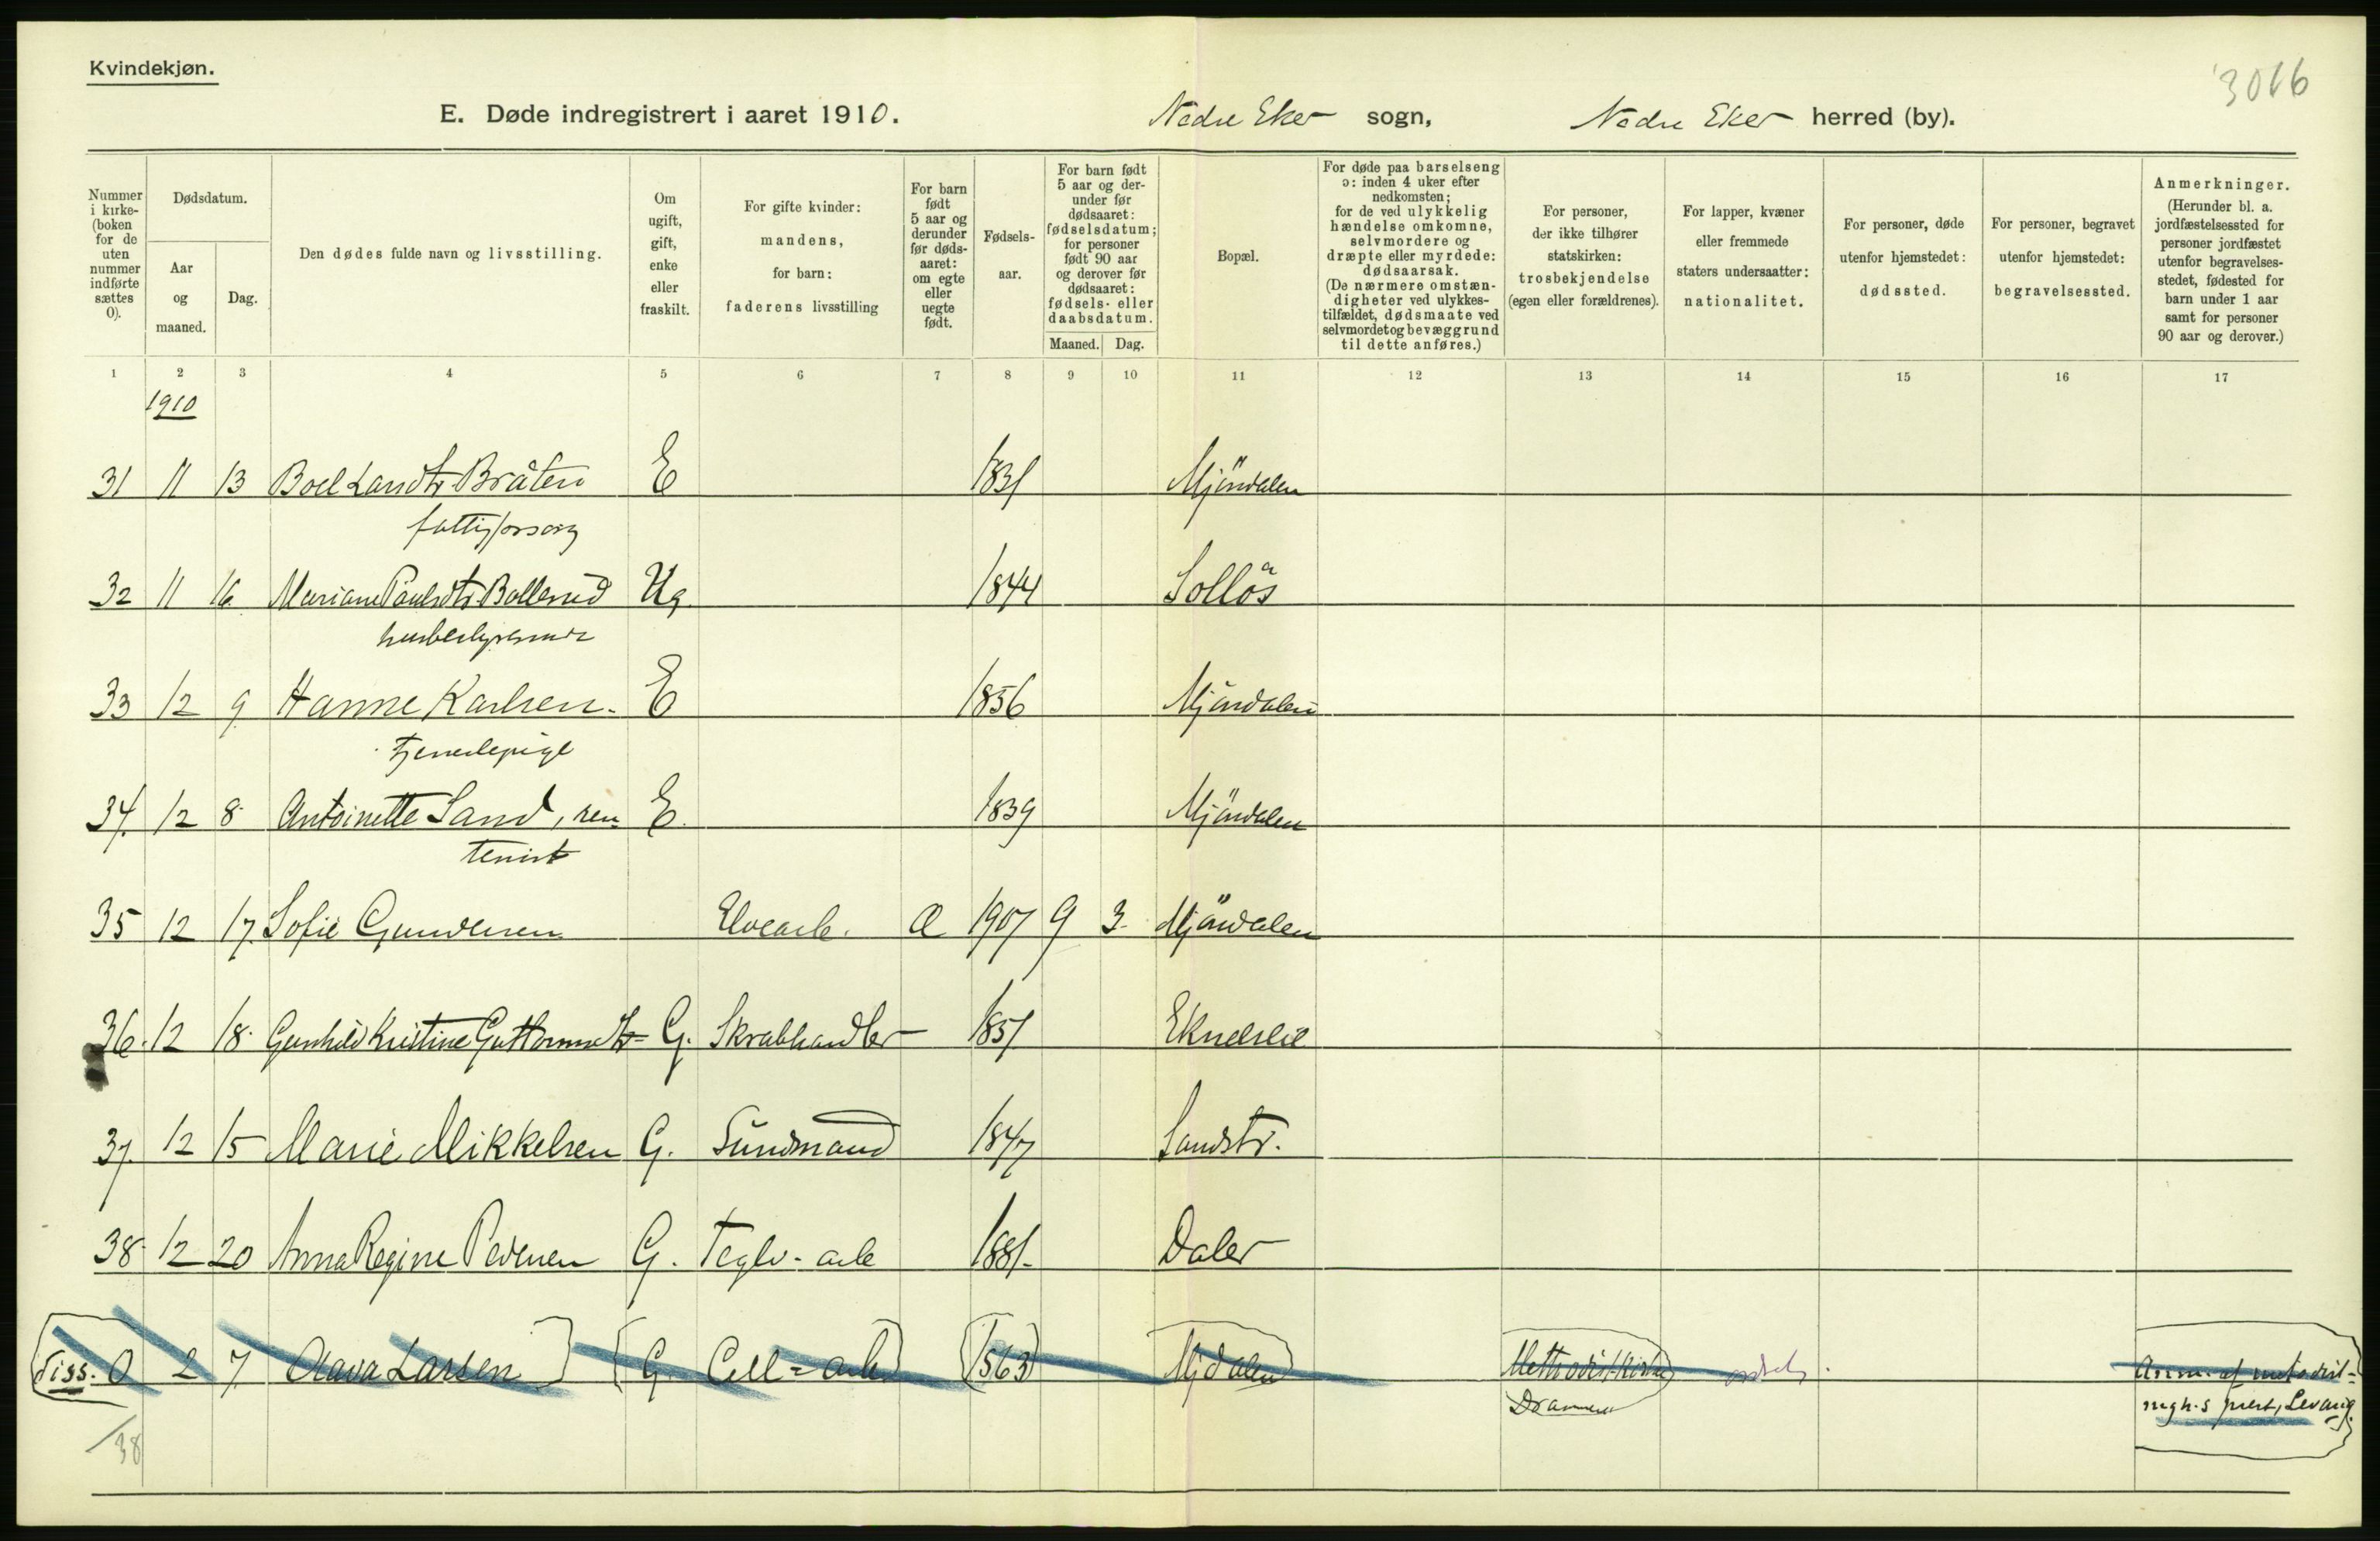 Kvindekjøn.
3016
E. Døde indregistrert i aaret 1910. Nedre Eker sogn, Nedre Eker herred (by).
Nummer i kirke- (boken for de uten nummer indførte sættes 0).
Dødsdatum.
Aar og maaned.
Dag.
Den dødes fulde navn og livsstilling.
Om ugift, gift, enke eller fraskilt.
For gifte kvinder: mandens, for barn: faderens livsstilling
For barn født 5 aar og derunder før døds- aaret: om egte eller uegte født.
Fødsels- aar.
For barn født 5 aar og der- under før dødsaaret: fødselsdatum; for personer født 90 aar og derover før dødsaaret: fødsels- eller daabsdatum.
Maaned. Dag.
Bopæl.
For døde paa barselseng ɔ: inden 4 uker efter nedkomsten; for de ved ulykkelig hændelse omkomne, selvmordere og dræpte eller myrdede: dødsaarsak. (De nærmere omstæn- digheter ved ulykkes- tilfældet, dødsmaate ved selvmord et og bevæggrund til dette anføres.)
For personer, der ikke tilhører statskirken: trosbekjendelse (egen eller forældrenes).
For lapper, kvæner eller fremmede staters undersaatter: nationalitet.
For personer, døde utenfor hjemstedet: dødssted.
For personer, begravet utenfor hjemstedet: begravelsessted.
Anmerkninger. (Herunder bl. a. jordfæstelsessted for personer jordfæstet utenfor begravelses- stedet, fødested for barn under 1 aar samt for personer 90 aar og derover.)
1 2 3 4 5 6 7 8 9 10 11 12 13 14 15 16 17
1910
31 11 13 Boel Larsdtr Bråten E 1831 Mjöndalen
fattigforsørg
32 11 16 Mariane Paulsdtr Bollerud Ug 1844 Sollös
husbestyrerinde
33 12 9 Hanne Karlsen. E 1856 Mjöndalen
tjenestepige
34. 12 8 Antoinette Sand, ren E. 1839 Mjöndalen
tenist
35 12 17. Sofie Gundersen Elvearb. Æ 1907 9 3. Mjöndalen
36. 12 18. Gunhild Kristine Guttormsdtr G. Skrabhandler 1851 Eknesleie
37. 12 15 Marie Mikkelsen G. Sundmand 1847 Sandstr.
38. 12 20 Anna Regine Pedersen G. Teglv-arb 1881. Daler
Diss. 0 2 7 Olava Larsen G. Cell-arb 1863 Mjdalen Methodistkirke
Drammen
Anm. af metodist=
mgh.s prest, Levang.
/38